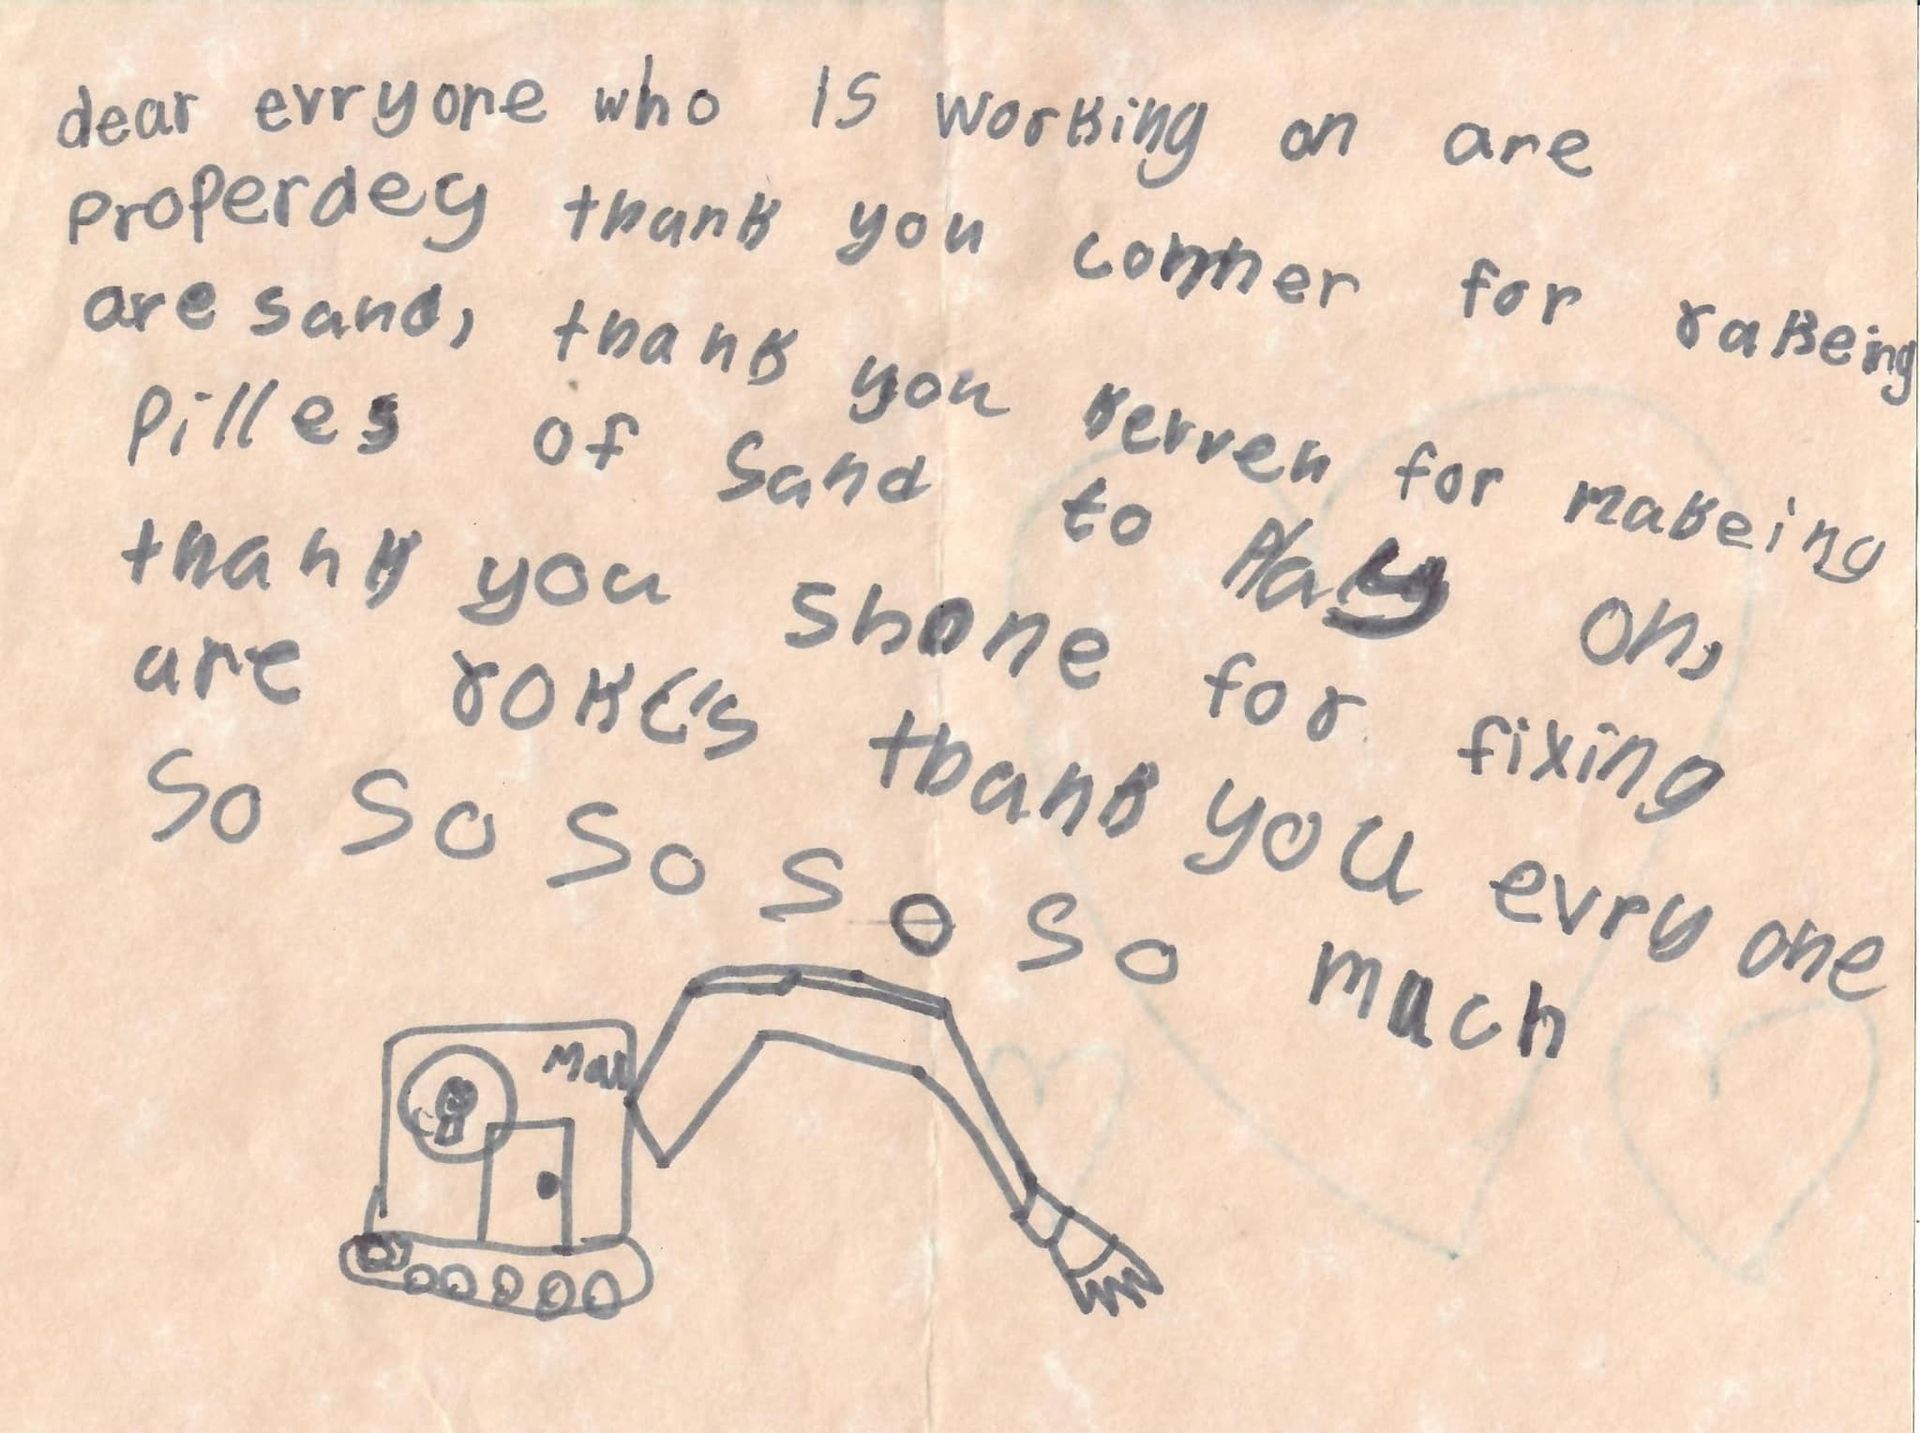 dear evryone who is working on are
properdey thank you conner for rakeing
are sand, thank you kerven for makeing
pilles of sand to play on,
thank you shone for fixing
are rokc's thank you evry one
so so so so so much
Mal